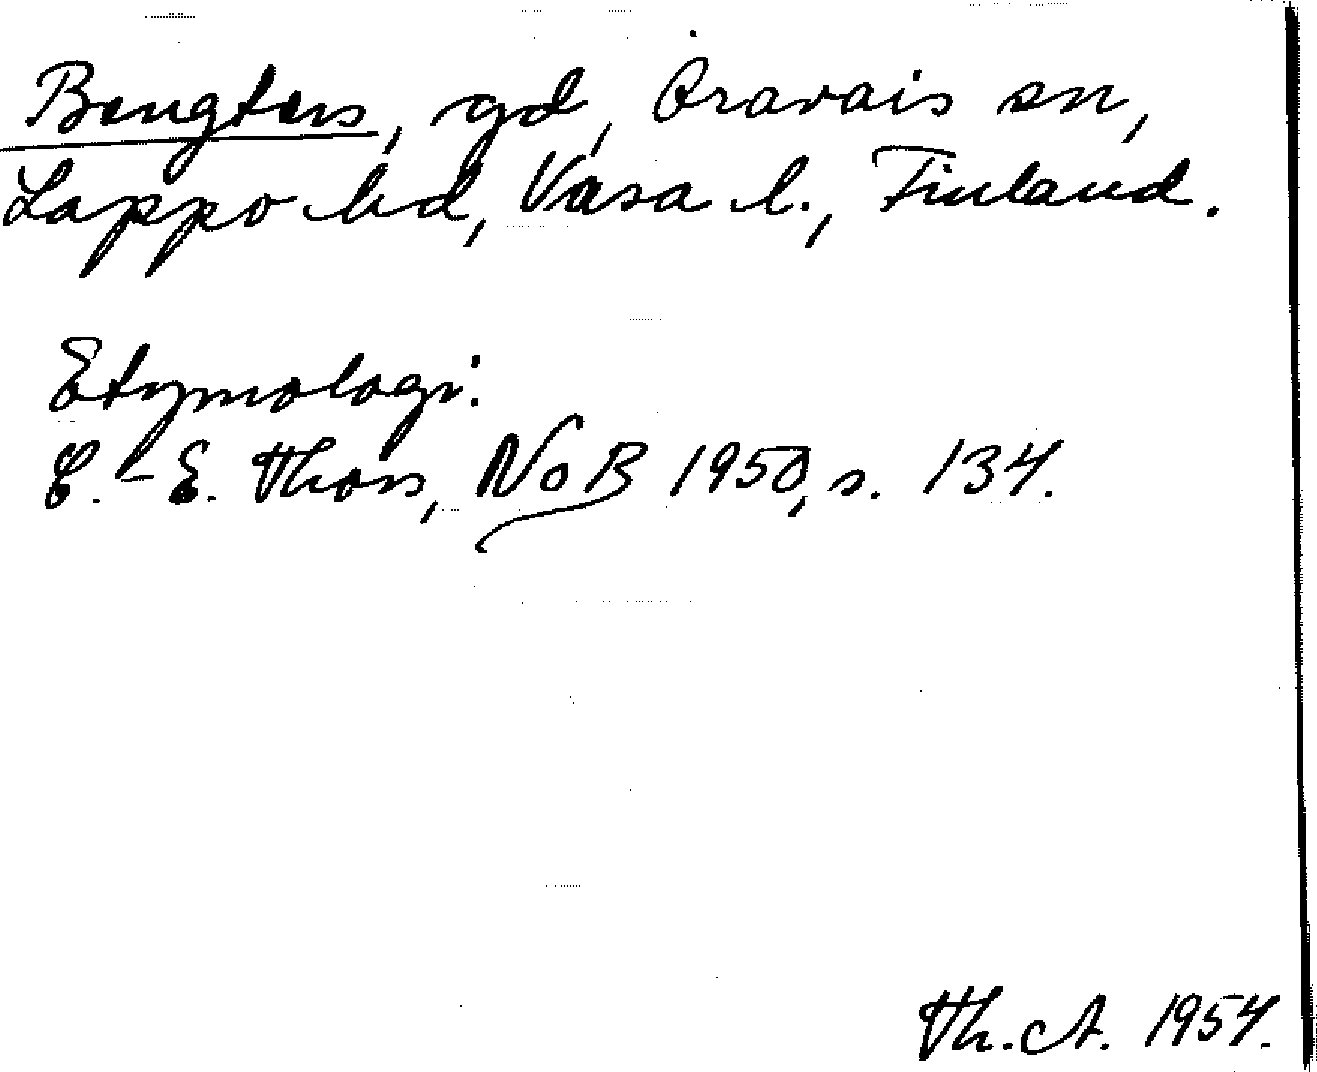 Bengters, gd, Oravais sn,
Lappo hd, Vasa l., Finland.
Etymologi:
C.-E. Thors, NoB 1950, s. 134.
Th. A. 1954.